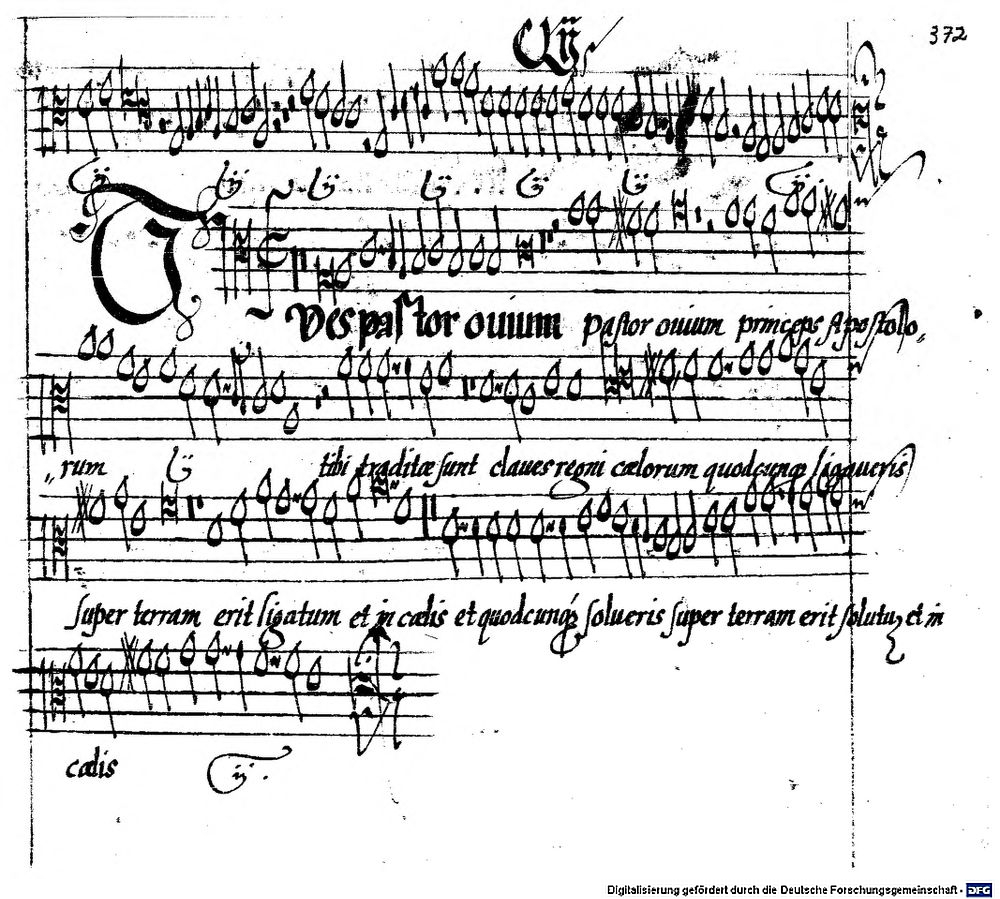 372
ij
ij ij ij ij ij ij ij
TVes pastor ouium pastor ouium princeps Apostolo„
„rum ij tibi traditæ sunt claues regni cælorum quodcunq; ligaueris
super terram erit ligatum et in cælis et quodcunq; solueris super terram erit solutuʒ et in
cælis ij.
Digitalisierung gefördert durch die Deutsche Forschungsgemeinschaft - DFG